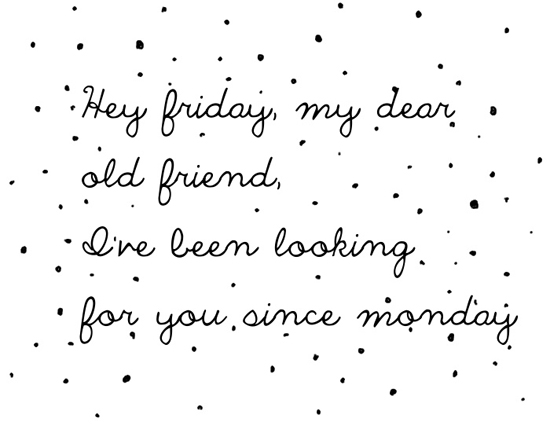 Hey friday, my dear
old friend,
I've been looking
for you since monday